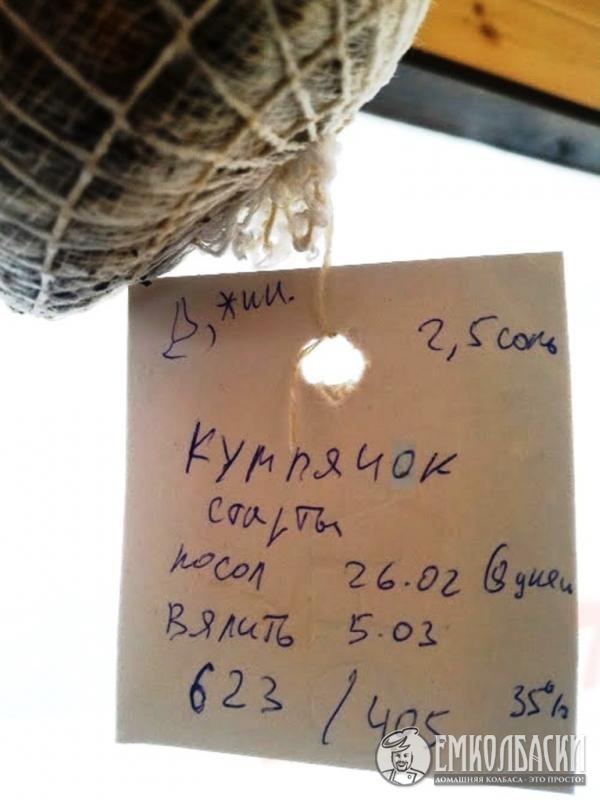 В, жил. 2,5 соль
Кумпячок
старты
посол 26.02 (8 дней
вялить 5.03
623 / 405 35%
ЕМКОЛБАСКИ
ДОМАШНЯЯ КОЛБАСА - ЭТО ПРОСТО!